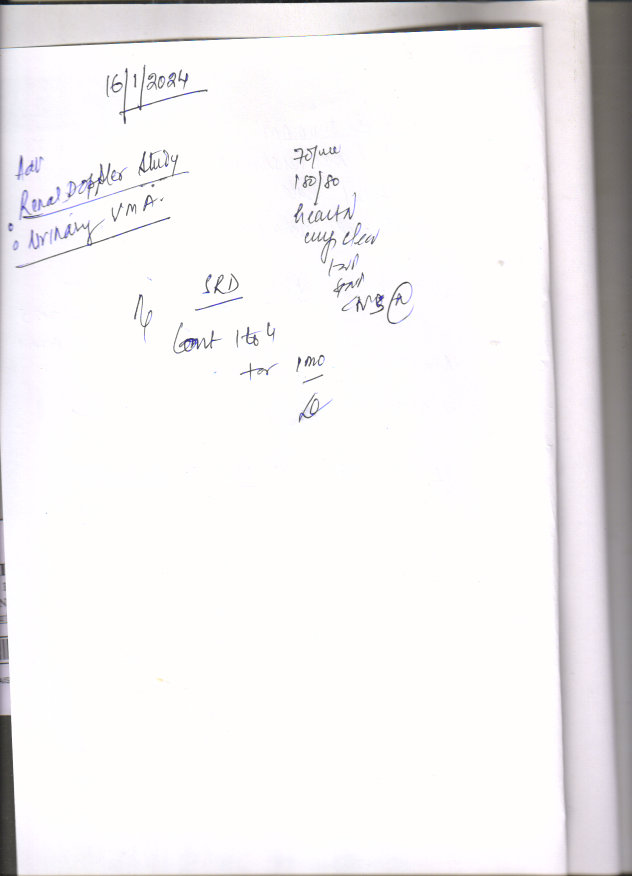 16/1/2024
Adv
• Renal Doppler Study
• Urinary VMA.
70/min
180/80
heart N
lungs clear
CNS N
SRD
Cont 1 to 4
for 1 mo